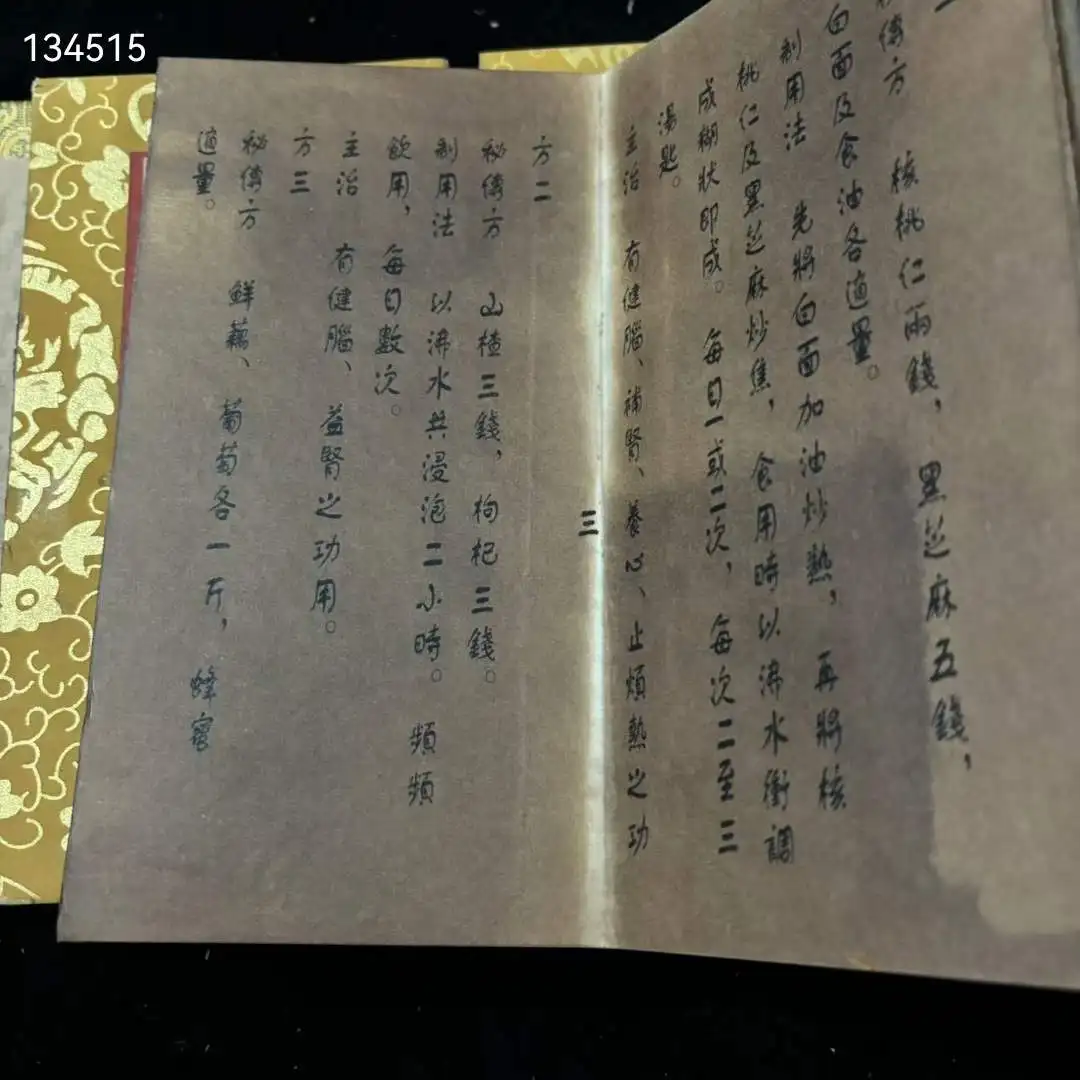 134515
傳方 核桃仁兩錢，黑芝麻五錢，
白面及食油各適量。
制用法 先將白面加油炒熱，再將核
桃仁及黑芝麻炒焦，食用時以沸水衝調
成糊狀即成。每日一或二次，每次二至三
湯匙。
主治 有健腦、補腎、養心、止煩熱之功
三
方二
秘傳方 山楂三錢，枸杞三錢。
制用法 以沸水共浸泡二小時。頻頻
飲用，每日數次。
主治 有健腦、益腎之功用。
方三
秘傳方 鮮藕、葡萄各一斤，蜂蜜
適量。